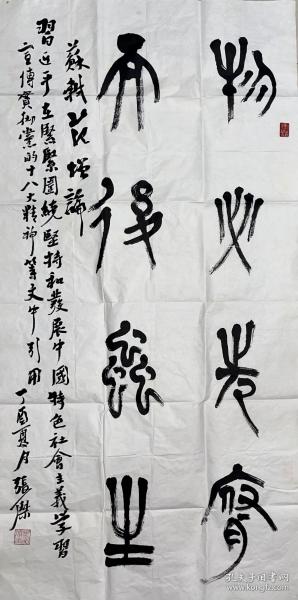 物必先腐
而後蟲生
蘇軾范增論
習近平在緊緊圍繞堅持和發展中國特色社會主義學習
宣傳貫徹黨的十八大精神等文中引用
丁酉夏月張傑
孔夫子旧书网